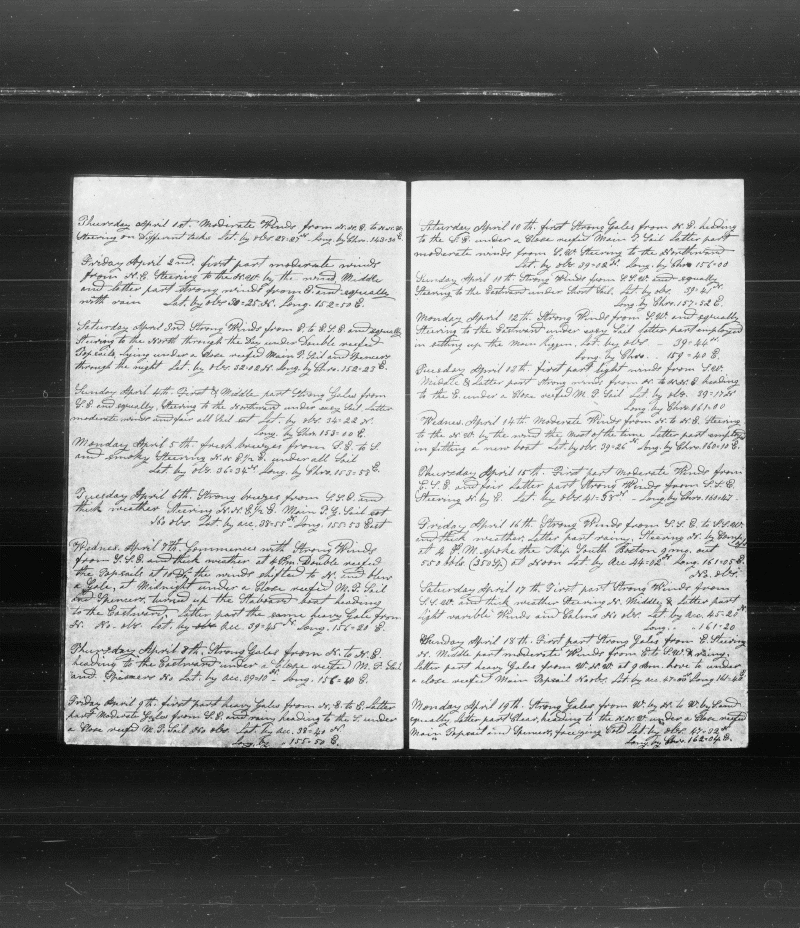 Thursday April 1st. Moderate Winds from N.N.E. to N.N.W.
Steering on Different tacks Lat. by obs 28-27 N Long. by Chro. 143-30 E.
Friday April 2nd. first part moderate winds
from N.E. Steering to the N.W. by the wind Middle
and latter part strong winds from E and equally
with rain Lat by obs 30-25 N. Long. 152-50 E.
Saturday April 3rd Strong Winds from E. to E.S.E. and equally
Steering to the North through the Day under Double reefed
Topsails lying under a Close reefed Main T. Sail and Spencers
through the night Lat. by obs. 32-02 N. Long. by Chro. 152-23 E.
Sunday April 4th. First & Middle part Strong Gales from
S.E. and equally, Steering to the Northward under easy Sail Latter
moderate winds and fair all Sail set Lat. by obs 34-22 N.
Long. by Chro. 153-00 E.
Monday April 5th fresh breezes from S.E. to S.
and smoky Steering N.N.E½E. under all Sail
Lat. by obs. 36-34 N. Long. by Chro. 153-57 E.
Tuesday April 6th. Strong breezes from S.S.E. and
thick weather Steering N.N.E½E. Main T.G. Sail set
No obs. Lat. by acc. 38-50 N Long. 155-53 East
Wednes. April 7th. Commences with Strong Winds
from S.S.E. and thick weather at 4 P.M. Double reefed
the Topsails at 10 the winds shifted to N. and blew
a Gale, at Midnight under a Close reefed M.T. Sail
and Spencers, turned up the Starboard boat heading
to the Eastward, Latter part the same heavy Gale from
N. No obs. Lat. by Acc. 39-45 N. Long. 156-21 E.
Thursday April 8th. Strong Gales from N. to N.E.
heading to the Eastward under a Close reefed M.T. Sail
and Spencers No Lat. by acc. 39-10 N. Long. 156-40 E.
Friday April 9th. first part heavy Gales from N.E. to E. Latter
part Moderate Gales from S.E. and rainy heading to the S. under
a Close reefed M.T. Sail No obs. Lat. by acc. 38-40 N.
Long. by " 155-50 E.
Saturday April 10th. first Strong Gales from N.E. heading
to the S.E. under a Close reefed Main T. Sail Latter part
moderate winds from S.W. Steering to the Northward
Lat. by obs 39-02 N. Long. by Chro 156-00
Sunday April 11th Strong Winds from S.S.W. and equally
Steering to the Eastward under Short Sail. Lat. by obs 39-41 N.
Long by Chro. 157-52 E.
Monday April 12th. Strong Winds from S.W. and equally
Steering to the Eastward under easy Sail latter part employed
in setting up the main riggen. Lat. by obs. - 39-44 N
Long by Chro. - 159-40 E.
Tuesday April 13th. first part light winds from S.W.
Middle & Latter part Strong winds from N. to N.N.E. heading
to the E. under a Close reefed M.T. Sail Lat by obs. 39-17 N
Long by Chro. 161-00
Wednes. April 14th. Moderate Winds from N. to N.E. Steering
to the N.W. by the wind the Most of the time Latter part employed
in fitting a new boat Lat. by obs. 39-26 N Long. by Chro. 160-10 E.
Thursday April 15th. First part Moderate Winds from
E.S.E. and fair Latter part Strong Winds from S.S.E.
Steering N. by E. Lat. by obs. 41-58 N - Long by Chro. 160-45
Friday April 16th. Strong Winds from S.S.E. to S.S.W.
and thick weather. Latter part rainy, Steering N. by Comp.
at 4 P.M. spoke the Ship South Boston 9 ms. out
550 bbls (350 Sp.) at Noon Lat by Acc 44-02 N. Long 161-05 E.
No. obs.
Saturday April 17th. First part Strong Winds from
S.S.W. and thick weather Steering N. Middle & Latter part
light varible Winds and Calms No obs. Lat by acc. 45-20 N.
Long. " 161-20
Sunday April 18th. First part Strong Gales from E. Steering
N. Middle part moderate Winds from E to S.W. & Rainy,
Latter part heavy Gales from W.N.W. at 9 Am. hove to under
a close reefed Main Topsail No obs. Lat by acc 47-00 N Long 161-40 E.
Monday April 19th. Strong Gales from W. by N. to W. by S. and
equally, Latter part Clear, heading to the N.N.W. under a Close reefed
Main Topsail and Spencer, freezing Cold Lat. by obs. 47-32 N.
Long. by Chro. 162-04 E.